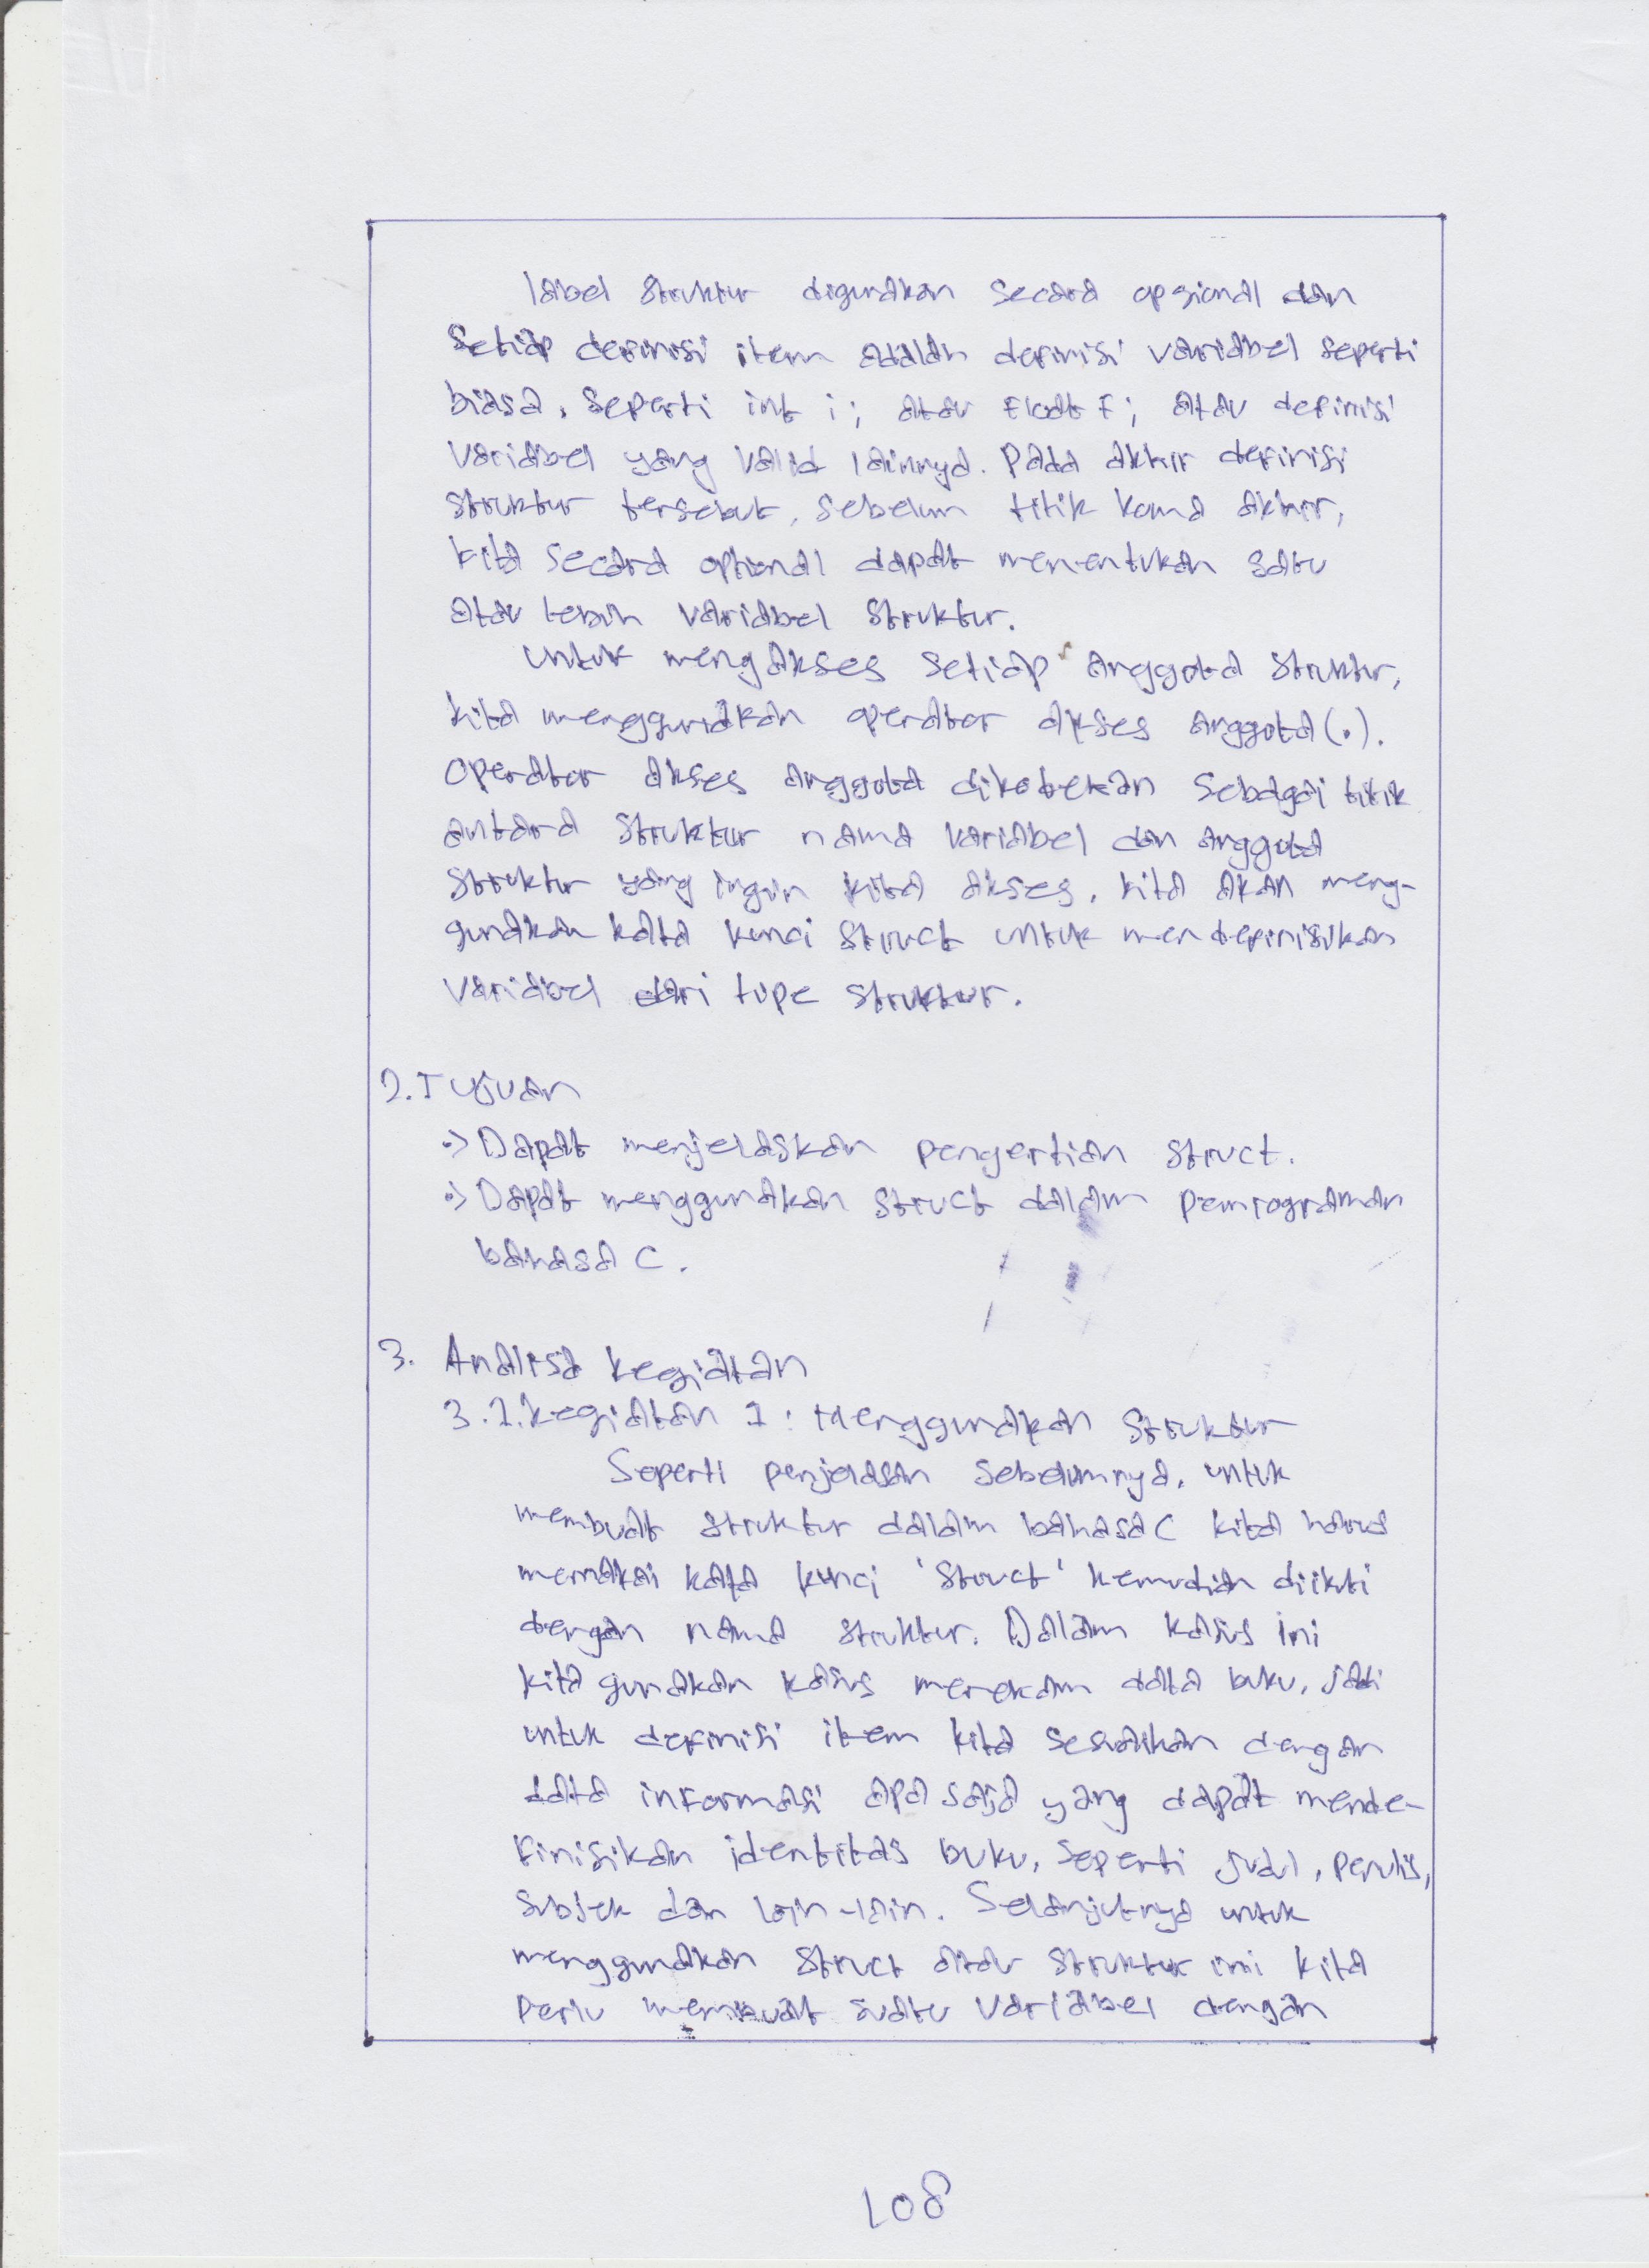 label struktur digunakan secara opsional dan
setiap definisi item adalah definisi variabel seperti
biasa, seperti int i; atau float f; atau definisi
variabel yang valid lainnya. Pada akhir definisi
struktur tersebut, sebelum titik koma akhir,
kita secara optional dapat menentukan satu
atau lebih variabel struktur.
Untuk mengakses setiap anggota struktur,
kita menggunakan operator akses anggota (.).
Operator akses anggota dikodekan sebagai titik
antara struktur nama variabel dan anggota
struktur yang ingin kita akses. kita akan meng-
gunakan kata kunci struct untuk mendefinisikan
variabel dari tipe struktur.
2. Tujuan
•> Dapat menjelaskan pengertian struct.
•> Dapat menggunakan struct dalam pemrograman
bahasa C.
3. Analisa kegiatan
3.1. kegiatan 1 : Menggunakan struktur
Seperti penjelasan sebelumnya, untuk
membuat struktur dalam bahasa C kita harus
memakai kata kunci 'struct' kemudian diikuti
dengan nama struktur. Dalam kasus ini
kita gunakan kasus merekam data buku, jadi
untuk definisi item kita sesuaikan dengan
data informasi apa saja yang dapat mende-
finisikan identitas buku, seperti judul, penulis,
subjek dan lain-lain. Selanjutnya untuk
menggunakan struct atau struktur ini kita
perlu membuat suatu variabel dengan
108